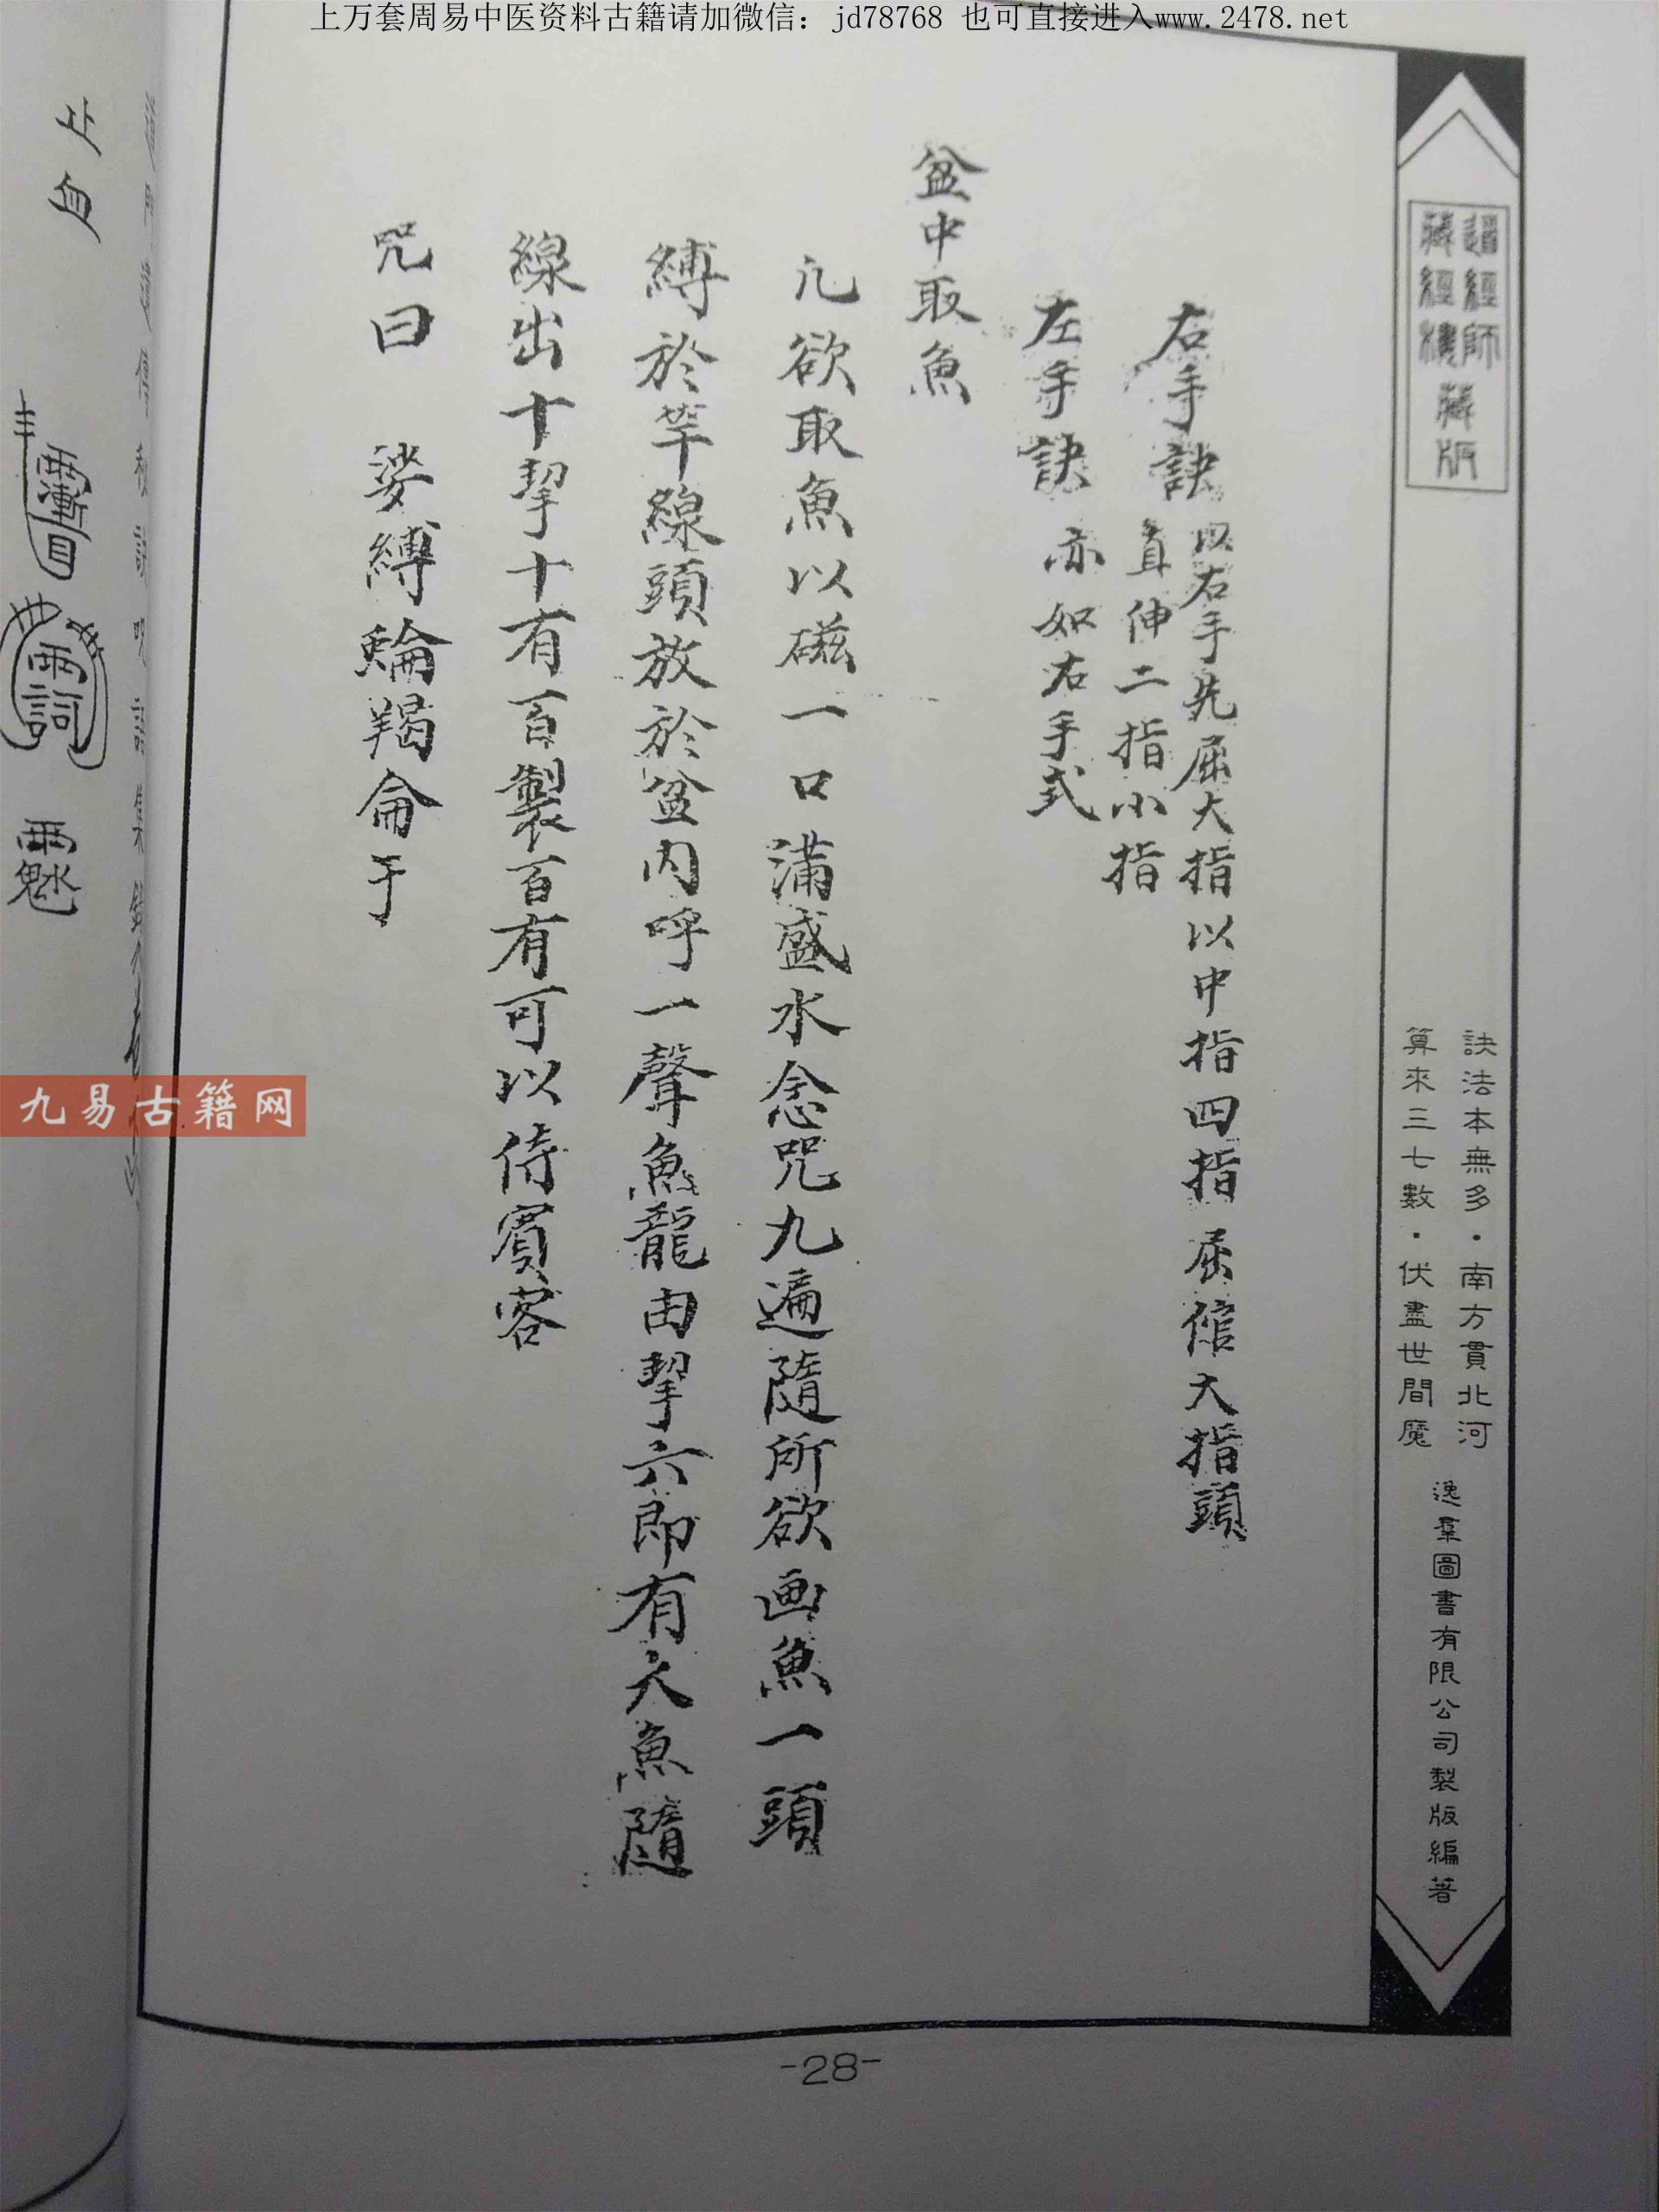 上万套周易中医资料古籍请加微信：jd78768 也可直接进入www.2478.net
道經師
藏經樓
藏版
訣法本無多・南方貫北河
算來三七數・伏盡世間魔
逸羣圖書有限公司製版編著
右手訣 以右手先屈大指以中指四指屈倌大指頭
直伸二指小指
左手訣 亦如右手式
盆中取魚
凡欲取魚以磁一口滿盛水念咒九遍隨所欲画魚一頭
縛於竿線頭放於盆内呼一聲魚龍由挈六即有大魚隨
線出十挈十有百製百有可以待賓客
咒曰 娑縛輪羯侖于
止血
九易古籍网
-28-